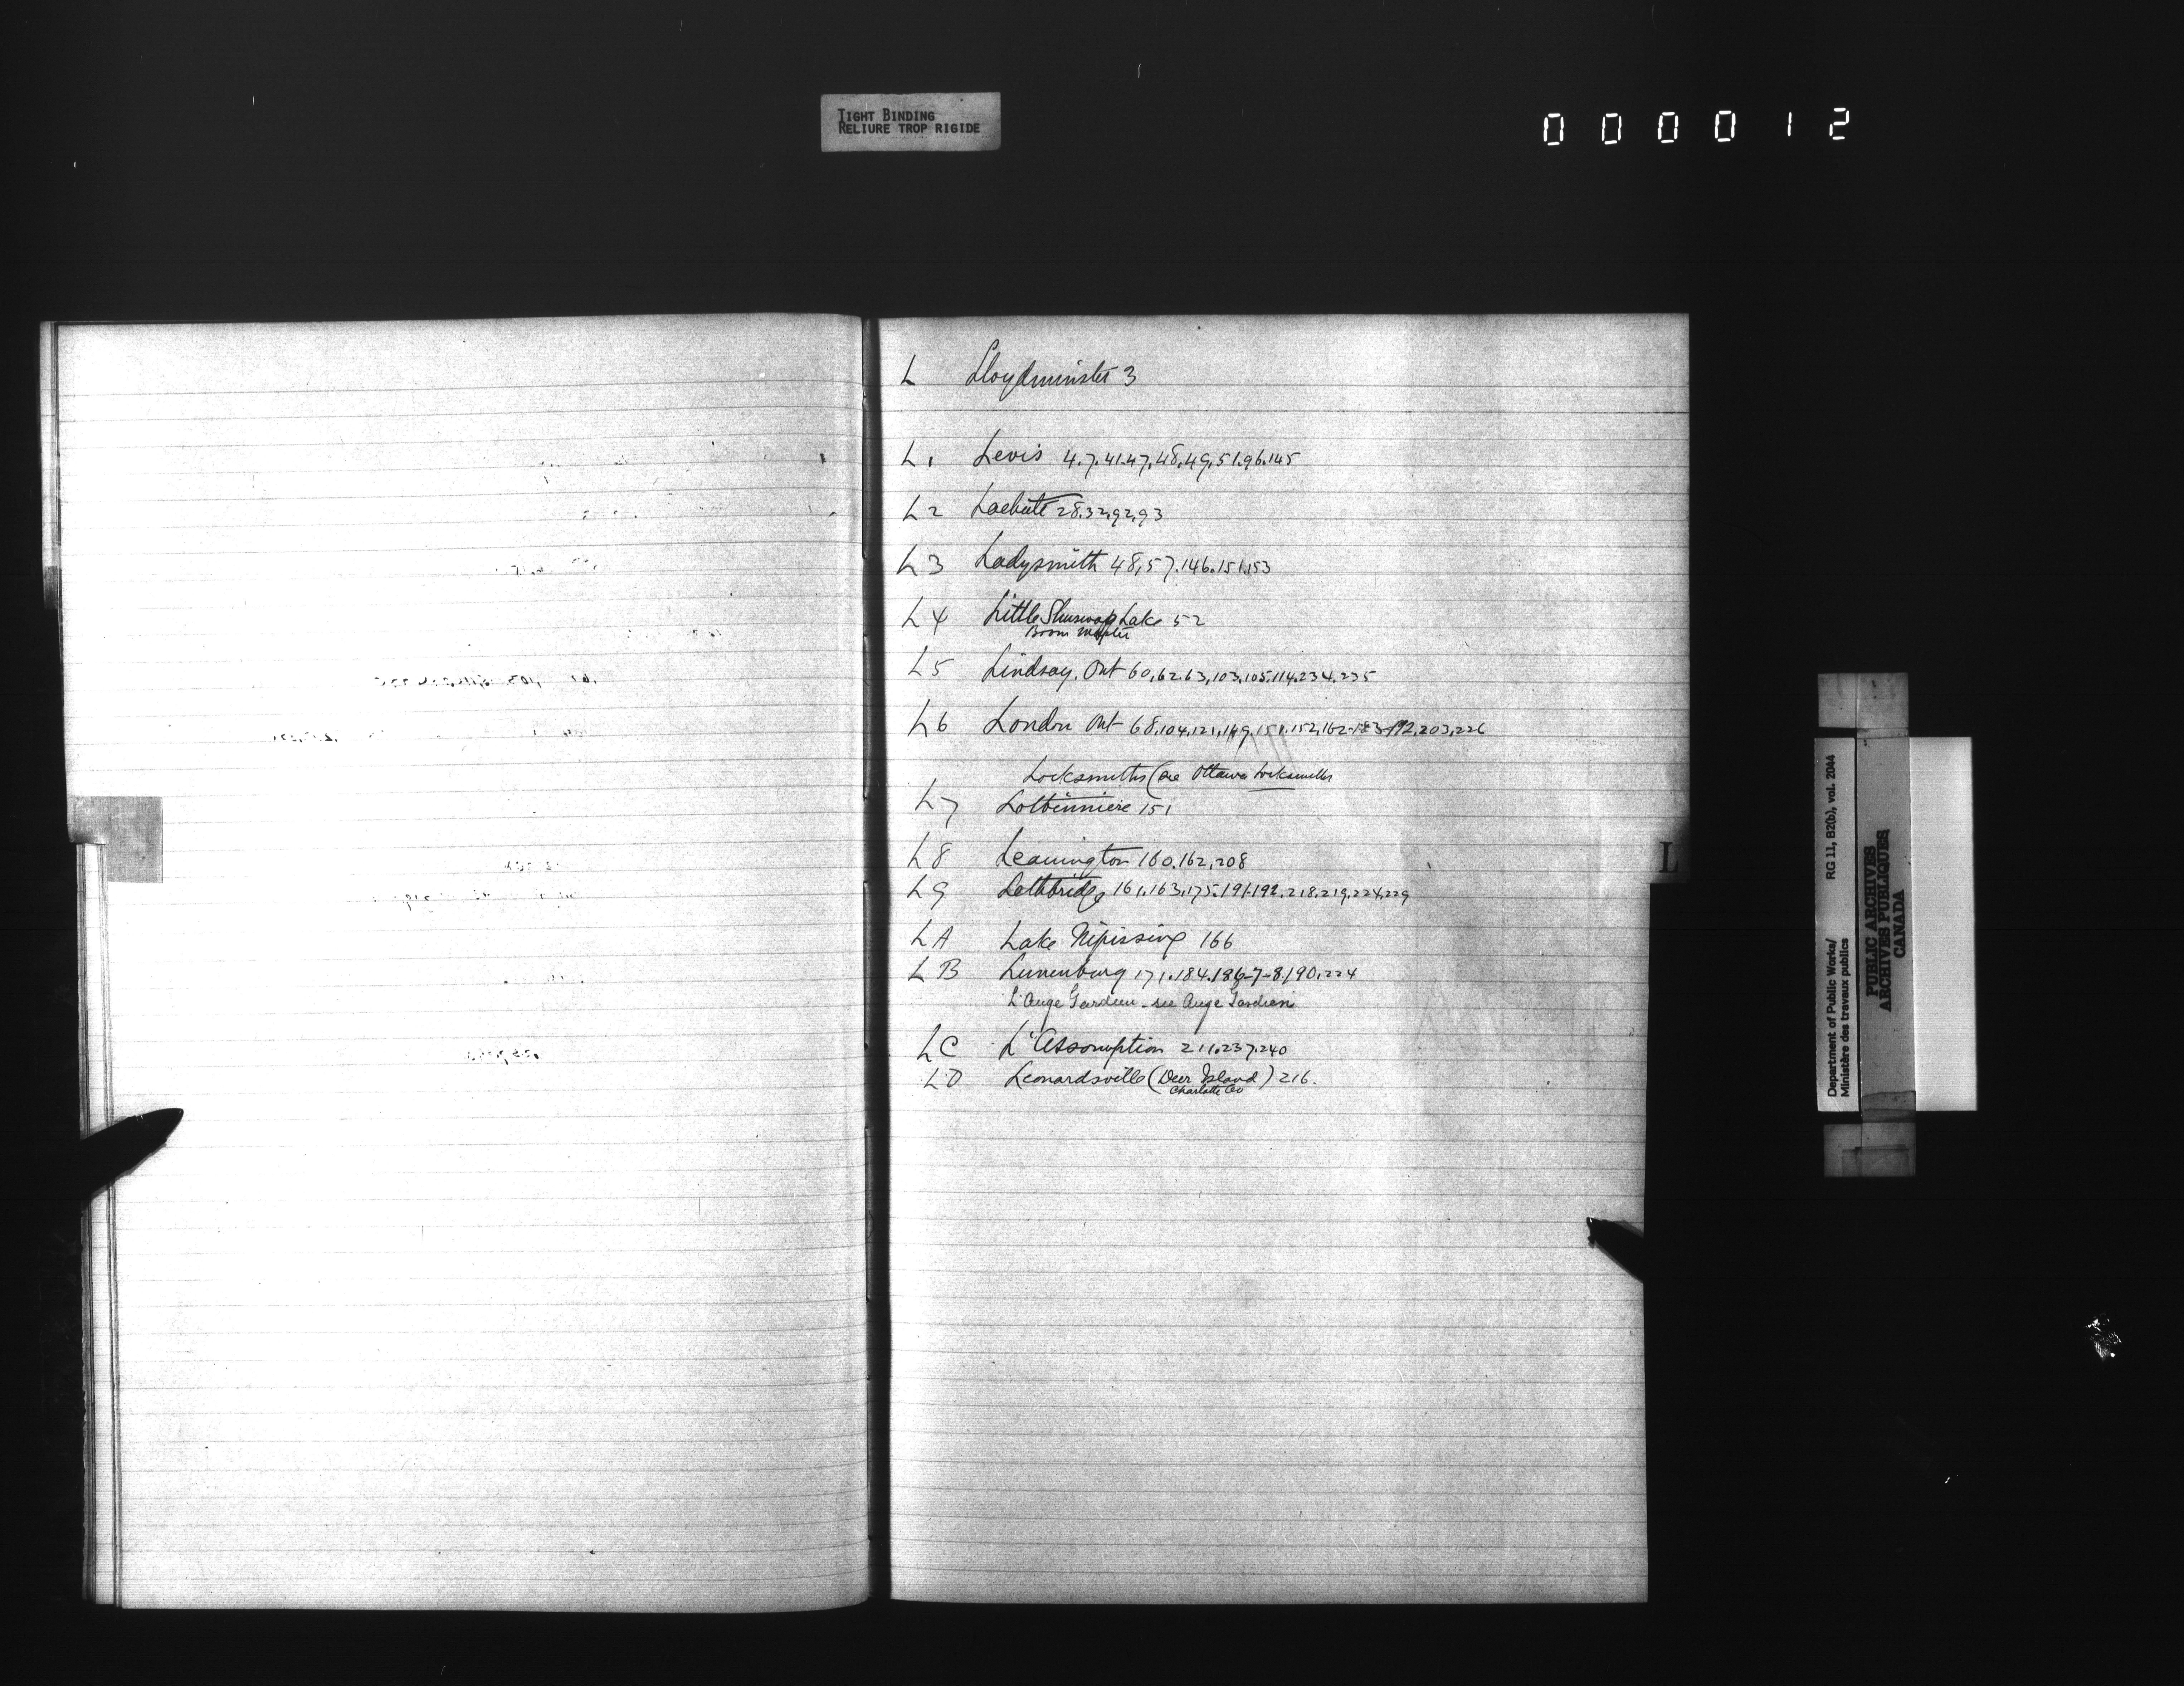 TIGHT BINDING
RELIURE TROP RIGIDE
000012
L Lloydminster 3
L1 Levis 4.7.41.47.48.49.51.96.145
L2 Lachute 28.32.92.93
L3 Ladysmith 48,57.146.151.153
L4 Little Shuswap Lake 52
Boom
L5 Lindsay. Ont 60,62.63,103,105.114.234.235
L6 London Ont 68,104,121,149,151.152,162-183-192,203,226
Locksmiths (see Ottawa Locksmiths
L7 Lotbinniere 151
L8 Leamington 160.162.208
L9 Lethbridge 161,163,175.191.192.218.219.224.229
LA Lake Nipissing 166
LB Lunenburg 171.184.186-7-8.190.224
L'Ange Gardien - see Ange Gardien
LC L'Assomption 211.237.240
LD Leonardsville (Deer Island) 216.
Charlotte Co
L
Department of Public Works/ RG 11, B2(b), vol. 2044
Ministère des travaux publics
PUBLIC ARCHIVES
ARCHIVES PUBLIQUES
CANADA